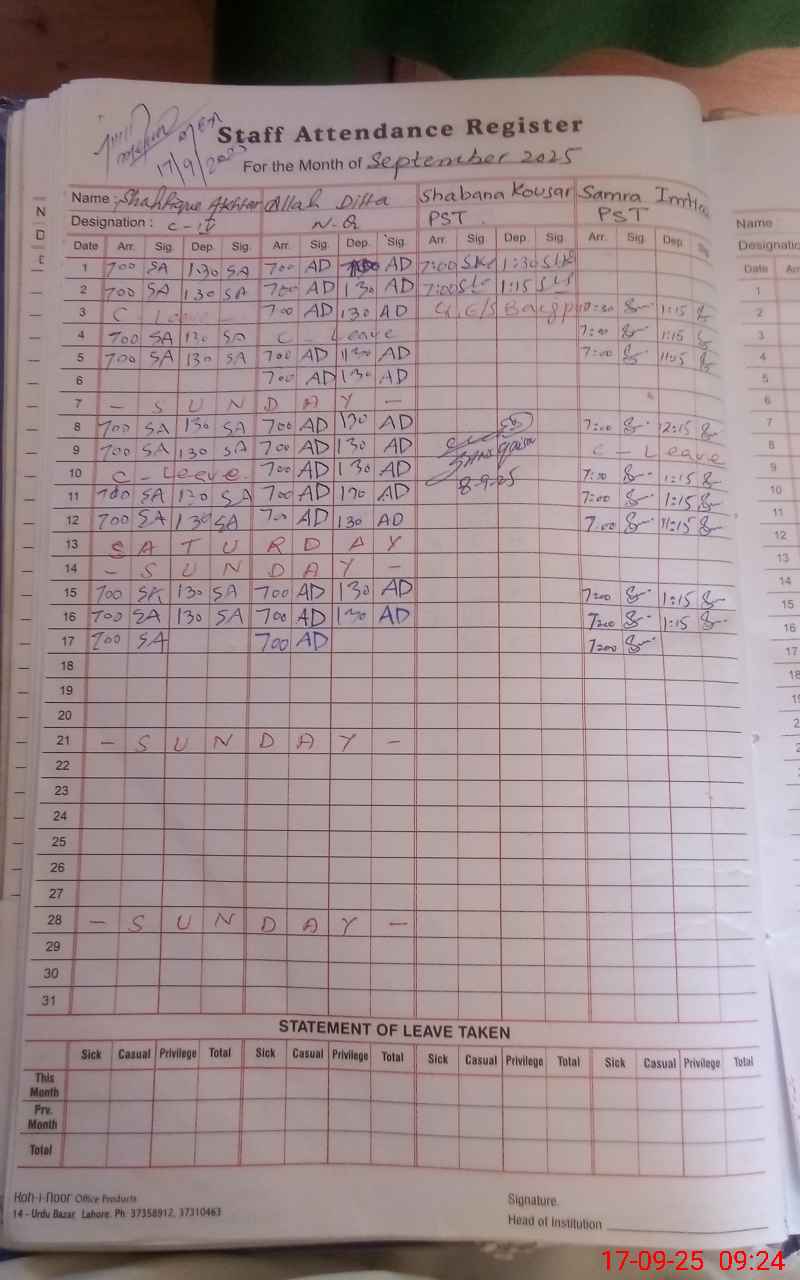 Staff Attendance Register
17/9/2025
For the Month of September 2025
Name : Shahfique Akhtar Allah Ditta Shabana Kousar Samra Imtiaz
Designation : C-IV N-Q PST PST
Date Arr. Sig. Dep. Sig. Arr. Sig. Dep. Sig. Arr. Sig. Dep. Sig. Arr. Sig. Dep. Sig
1 700 SA 130 SA 700 AD AD 7:00 SK 1:30 SK
2 700 SA 130 SA 700 AD 130 AD 7:00 1:15
3 C Leave 700 AD 130 AD 1:15
4 700 SA 130 SA C - Leave 7:00 1:15
5 700 SA 130 SA 700 AD 130 AD 7:00 11:05
6 700 AD 130 AD
7 - S U N D A Y -
8 700 SA 130 SA 700 AD 130 AD 7:00 12:15
9 700 SA 130 SA 700 AD 130 AD C - Leave
10 C - Leave. 700 AD 130 AD 7:00 1:15
8-9-25
11 700 SA 130 SA 700 AD 130 AD 7:00 1:15
12 700 SA 130 SA 700 AD 130 AD 7:00 11:15
13 S A T U R D A Y
14 - S U N D A Y -
15 700 SA 130 SA 700 AD 130 AD 7:00 1:15
16 700 SA 130 SA 700 AD 130 AD 7:00 1:15
17 700 SA 700 AD 7:00
18
19
20
21 - S U N D A Y -
22
23
24
25
26
27
28 - S U N D A Y -
29
30
31
STATEMENT OF LEAVE TAKEN
Sick Casual Privilege Total Sick Casual Privilege Total Sick Casual Privilege Total Sick Casual Privilege Total
This Month
Prv. Month
Total
Koh-i-Noor Office Products
14 - Urdu Bazar, Lahore. Ph: 37358912, 37310463
Signature.
Head of Institution
Name
Designatio
Date Arr
1
2
3
4
5
6
7
8
9
10
11
12
13
14
15
16
17
18
17-09-25 09:24